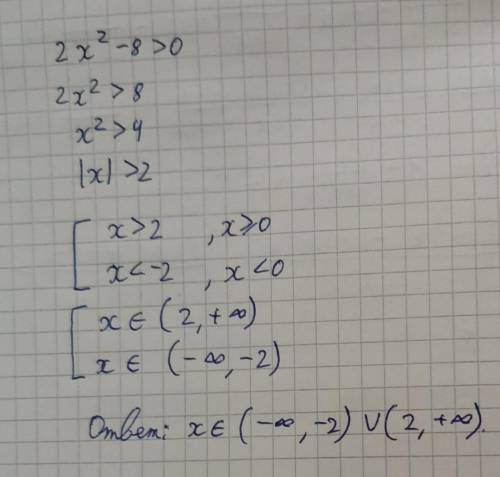 2x² - 8 > 0
2x² > 8
x² > 4
|x| > 2
[ x > 2 , x ⩾ 0
x < -2 , x < 0
[ x ∈ (2, +∞)
x ∈ (-∞, -2)
Ответ: x ∈ (-∞, -2) ∪ (2, +∞).